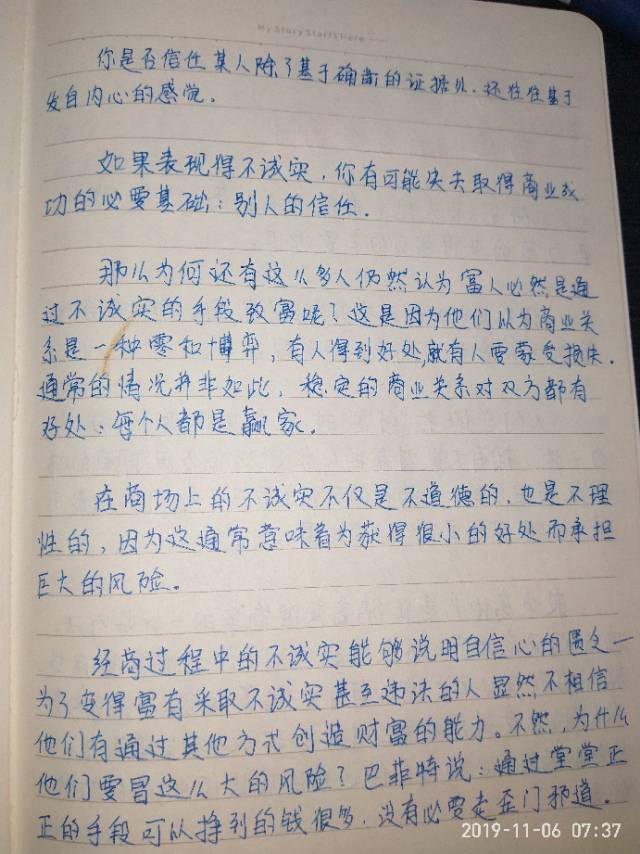 My Story Starts Here
你是否信任某人除了基于确凿的证据外.还往往基于
发自内心的感觉。
如果表现得不诚实,你有可能失去取得商业成
功的必要基础:别人的信任.
那么为何还有这么多人仍然认为富人必然是通
过不诚实的手段致富呢?这是因为他们以为商业关
系是一种零和博弈,有人得到好处,就有人要蒙受损失.
通常的情况并非如此,稳定的商业关系对双方都有
好处:每个人都是赢家。
在商场上的不诚实不仅是不道德的,也是不理
性的,因为这通常意味着为获得很小的好处而承担
巨大的风险。
经商过程中的不诚实能够说明自信心的匮乏一
为了变得富有采取不诚实甚至违法的人显然不相信
他们有通过其他方式创造财富的能力。不然,为什么
他们要冒这么大的风险?巴菲特说:通过堂堂正
正的手段可以挣到的钱很多.没有必要走歪门邪道.
2019-11-06 07:37